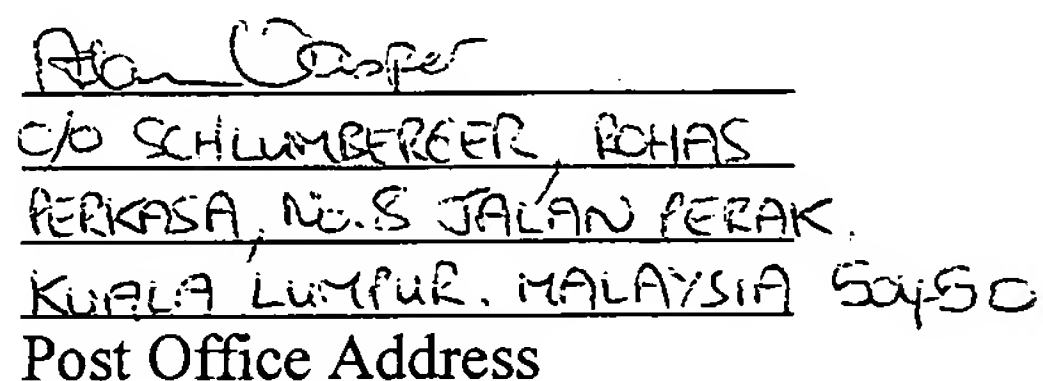 Alan Casper
C/O SCHLUMBERGER, ROHAS
PERKASA, NO.8 JALAN PERAK.
KUALA LUMPUR. MALAYSIA 50450
Post Office Address